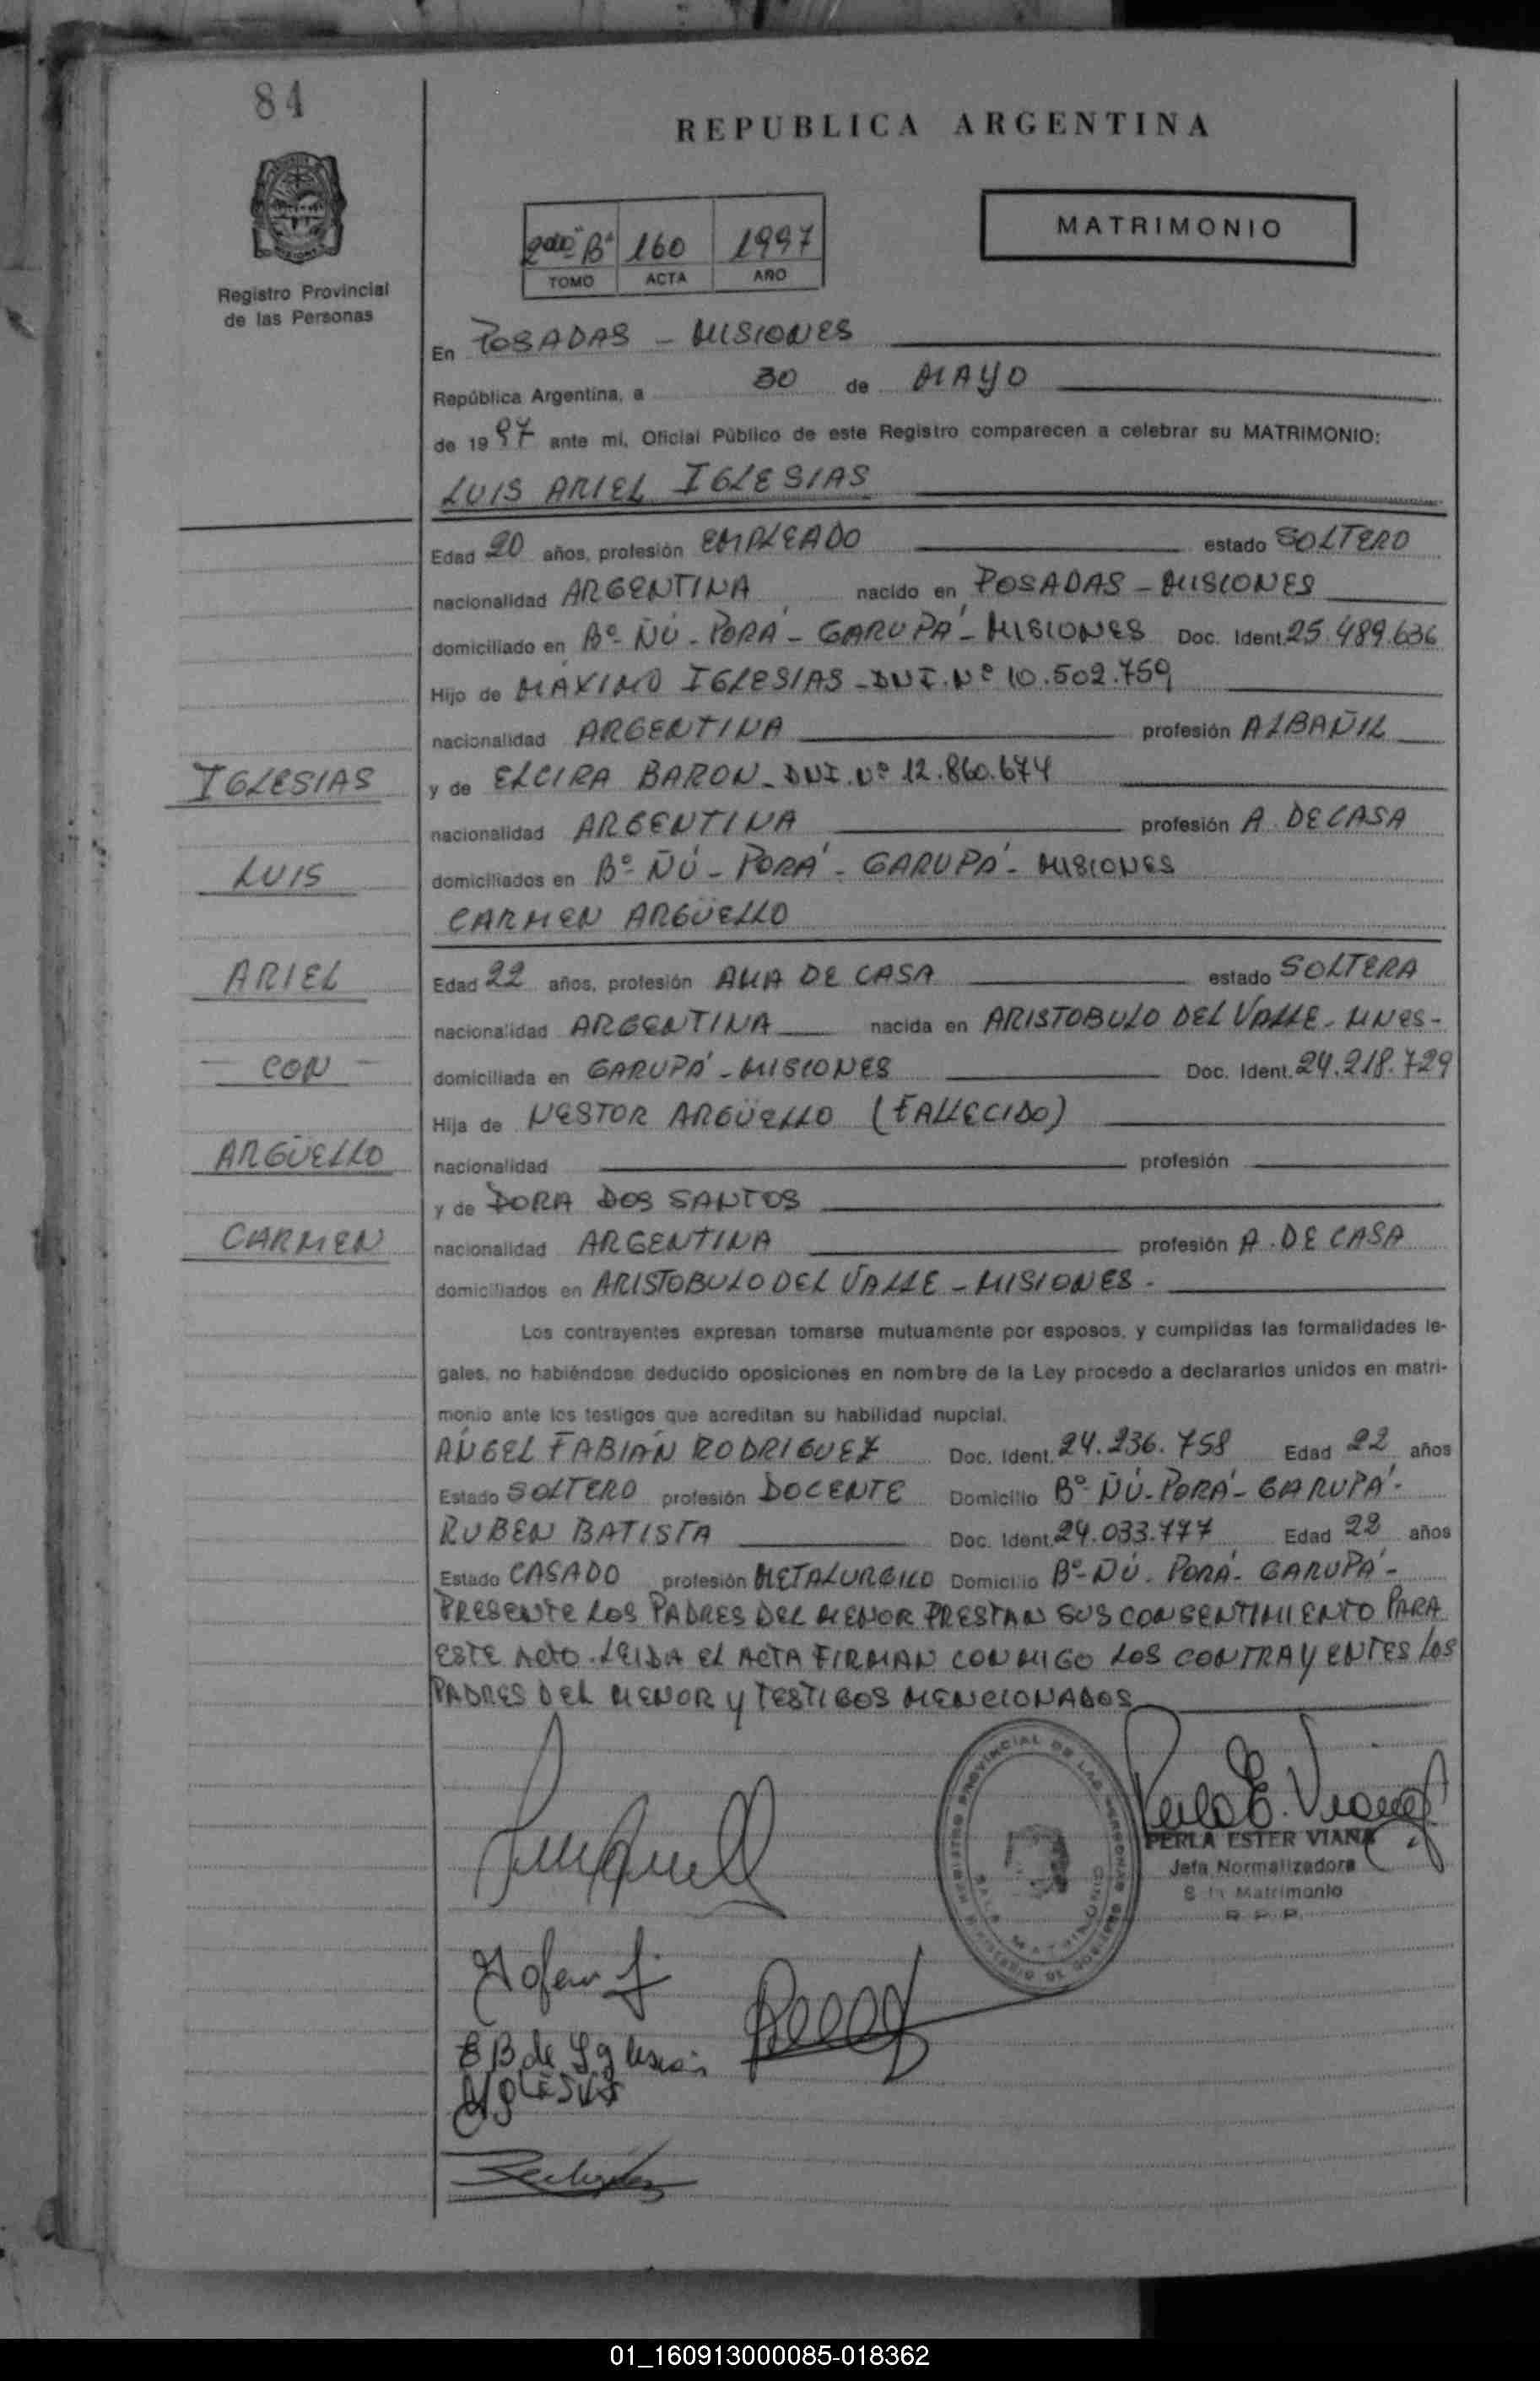 84
REPUBLICA ARGENTINA
MATRIMONIO
2do Bº 160 1997
TOMO ACTA AÑO
Registro Provincial
de las Personas
En POSADAS - MISIONES
República Argentina, a 30 de MAYO
de 1997 ante mí, Oficial Público de este Registro comparecen a celebrar su MATRIMONIO:
LUIS ARIEL IGLESIAS
Edad 20 años, profesión EMPLEADO estado SOLTERO
nacionalidad ARGENTINA nacido en POSADAS - MISIONES
domiciliado en Bº ÑÚ - PORÁ - GARUPÁ - MISIONES Doc. Ident. 25.489.636
Hijo de MÁXIMO IGLESIAS - DNI. Nº 10.502.759
nacionalidad ARGENTINA profesión ALBAÑIL
IGLESIAS
y de ELCIRA BARON - DNI. Nº 12.860.674
nacionalidad ARGENTINA profesión A. DE CASA
LUIS
domiciliados en Bº ÑÚ - PORÁ - GARUPÁ - MISIONES
CARMEN ARGÜELLO
ARIEL
Edad 22 años, profesión AMA DE CASA estado SOLTERA
nacionalidad ARGENTINA nacida en ARISTOBULO DEL VALLE - MNES -
- CON -
domiciliada en GARUPÁ - MISIONES Doc. Ident. 24.218.729
Hija de NESTOR ARGÜELLO (FALLECIDO)
ARGÜELLO
nacionalidad profesión
y de DORA DOS SANTOS
CARMEN
nacionalidad ARGENTINA profesión A. DE CASA
domiciliados en ARISTOBULO DEL VALLE - MISIONES -
Los contrayentes expresan tomarse mutuamente por esposos, y cumplidas las formalidades le-
gales, no habiéndose deducido oposiciones en nombre de la Ley procedo a declararlos unidos en matri-
monio ante los testigos que acreditan su habilidad nupcial.
ÁNGEL FABIÁN RODRIGUEZ Doc. Ident. 24.236.758 Edad 22 años
Estado SOLTERO profesión DOCENTE Domicilio Bº ÑÚ - PORÁ - GARUPÁ -
RUBEN BATISTA Doc. Ident. 24.033.777 Edad 22 años
Estado CASADO profesión METALURGICO Domicilio Bº ÑÚ - PORÁ - GARUPÁ -
PRESENTE LOS PADRES DEL MENOR PRESTAN SUS CONSENTIMIENTO PARA
ESTE ACTO. LEIDA EL ACTA FIRMAN CONMIGO LOS CONTRAYENTES LOS
PADRES DEL MENOR Y TESTIGOS MENCIONADOS
REGISTRO PROVINCIAL DE LAS PERSONAS
MINISTERIO DE GOBIERNO
SALA MATRIMONIO
Perla E. Viana
PERLA ESTER VIANA
Jefa Normalizadora
S. Matrimonio
R. P. P.
E B de Iglesias
IGLESIAS
01_160913000085-018362